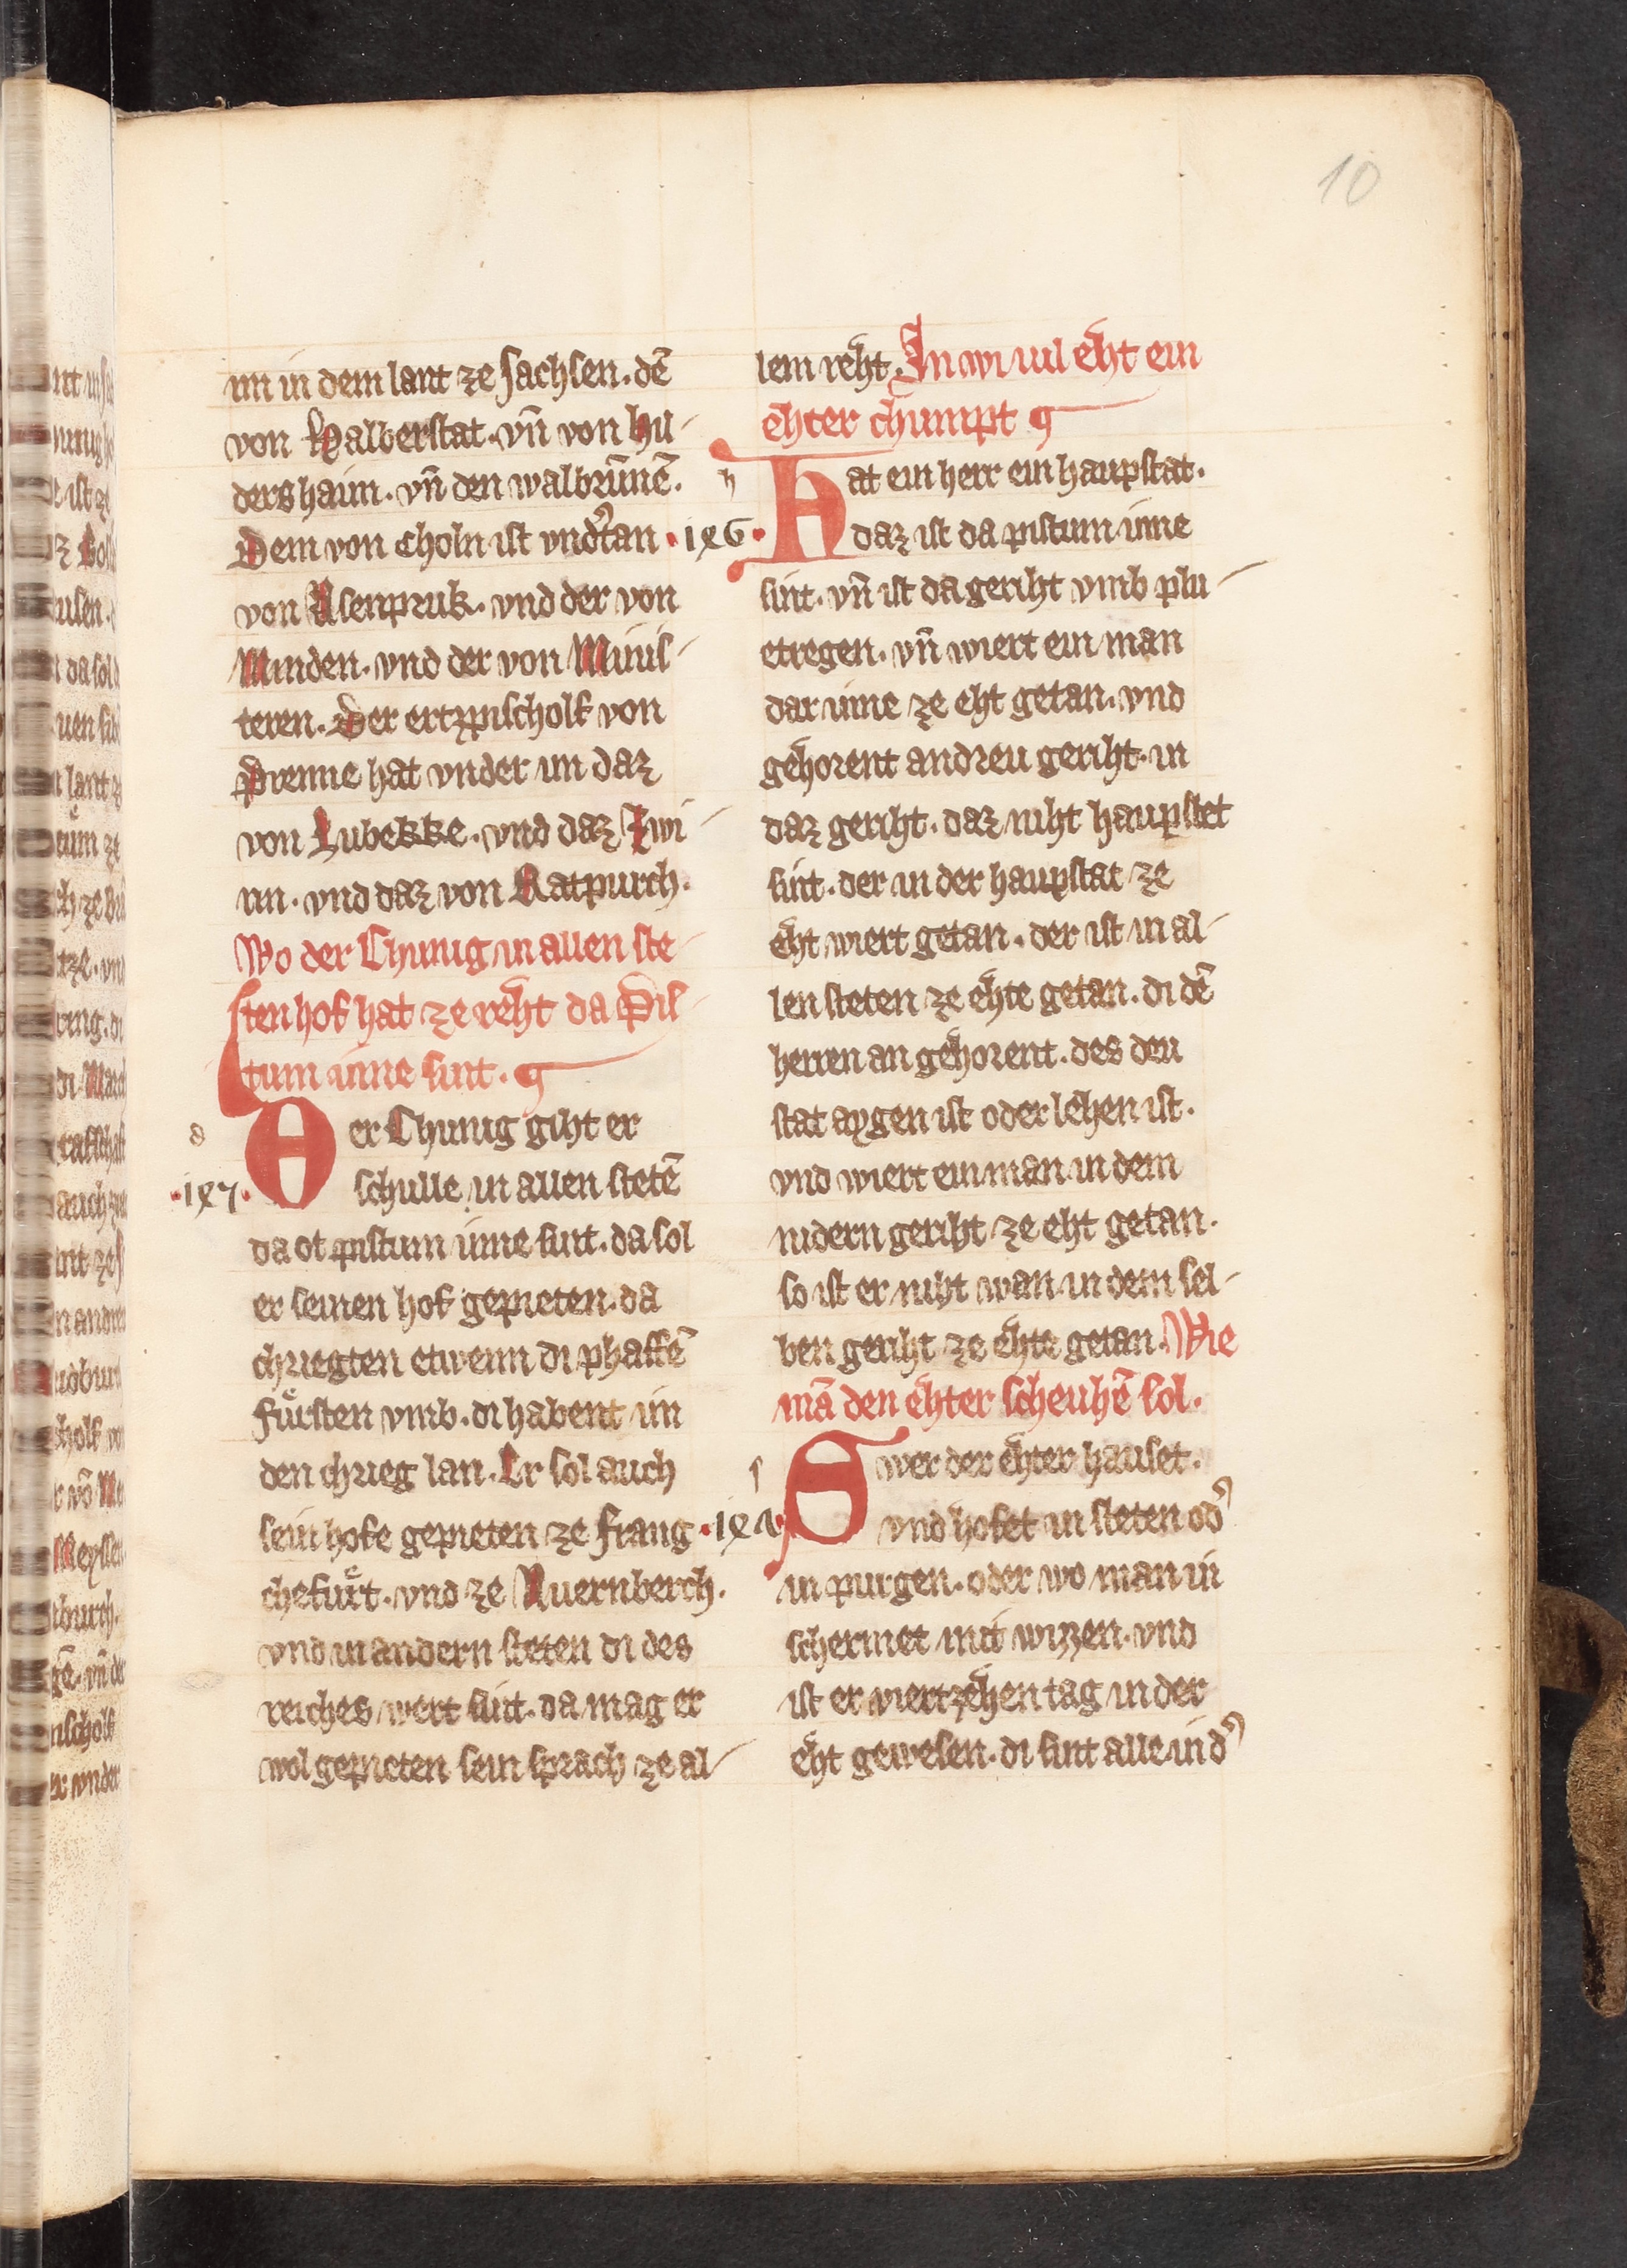 10
im in dem lant ze sachsen. dē
von Halberstat. vn̄ von hil-
dershaim. vn̄ den walbrūnē.
Dem von Choln ist vnd᾽tan
von Osenpruk. vnd der von
Minden. vnd der von Münis-
teren. Der ertzpischolf von
Premie hat vnder im daz
von Lubekke. vnd daz Zwi-
rin. vnd daz von Ratpurch.
Wo der Chunig in allen ste-
ten hof hat ze reht da Pis-
tum inne sint.
d
Der Chunig giht er
schulle in allen stetē
da ot pistum inne sint. da sol
er seinen hof gepieten. da
chriegten etwenn di phaffē
Fuͤrsten vmb. di habent im
den chrieg lan. Er sol auch
sein hofe gepieten ze frang
chefuͤrt. vnd ze Nuernberch.
vnd in andern steten di des
reiches wert sint. da mag er
wol gepieten sein sprach ze al-
lem reht. In wi uil eht ein
ehter chumpt
h
Hat ein herr ein haupstat.
daz ist da pistum inne
sint. vn̄ ist da geriht vmb plu-
etregen. vn̄ wiert ein man
dar inne ze eht getan. vnd
gehorent andreu geriht. in
daz geriht. daz niht haupstet
sint. der in der haupstat ze
eht wiert getan. der ist in al-
len steten ze ehte getan. di dē
herren an gehorent. des deu
stat aygen ist oder lehen ist.
vnd wiert ein man in dem
nidern geriht ze eht getan.
so ist er niht wan in dem sel-
ben geriht ze ehte getan. Wie
mā den ehter scheuhē sol.
s
Swer der ehter hauset.
vnd hofet in steten od᾽
in purgen. oder wo man in
schermet mit wizzen. vnd
ist er viertzehen tag in der
eht gewesen. di sint alle in d᾽